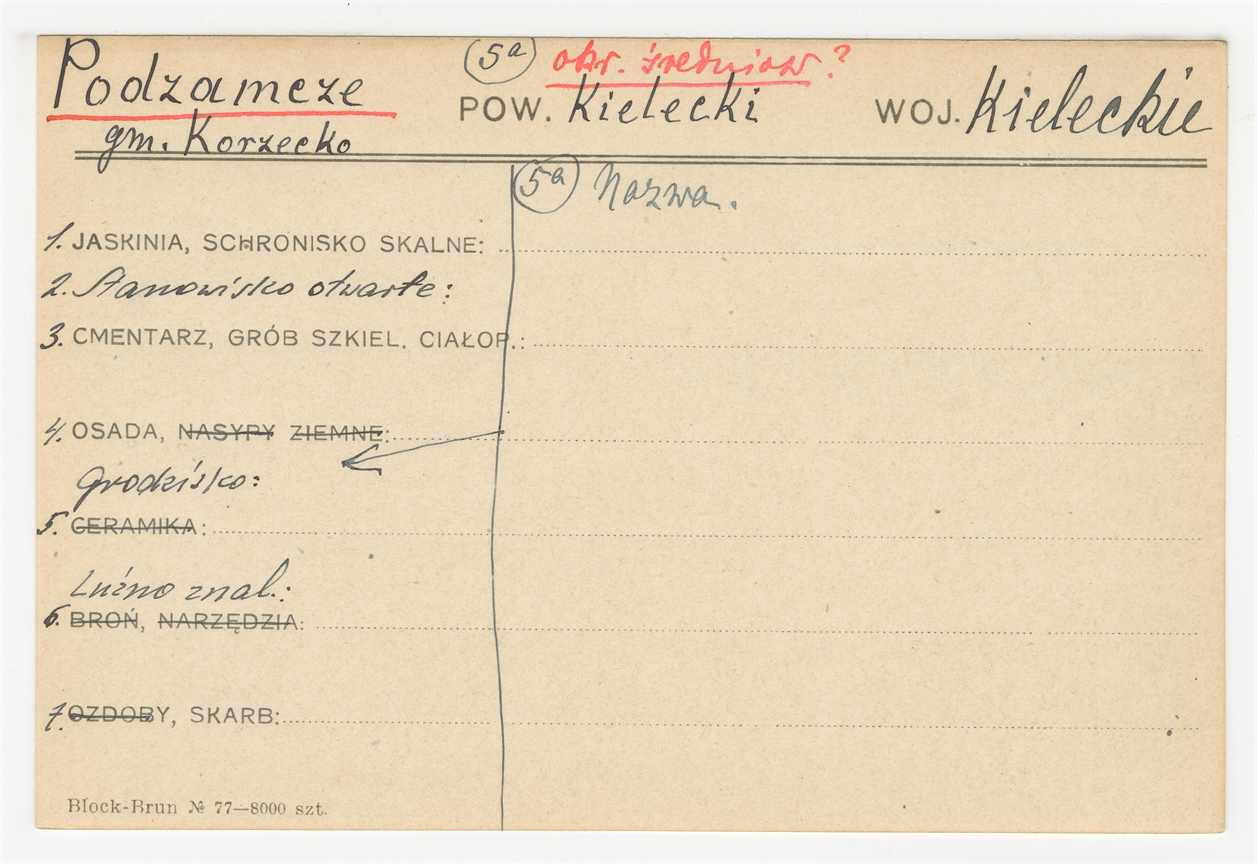 (5a) okr. średniow.?
Podzamcze POW. Kielecki WOJ. Kieleckie
gm. Korzecko
(5a) Nazwa.
1. JASKINIA, SCHRONISKO SKALNE:
2. Stanowisko otwarte:
3. CMENTARZ, GRÓB SZKIEL. CIAŁOP.:
4. OSADA, NASYPY ZIEMNE:
Grodzisko:
5. CERAMIKA:
Luźno znal.:
6. BROŃ, NARZĘDZIA:
7. OZDOBY, SKARB:
Block-Brun № 77—8000 szt.